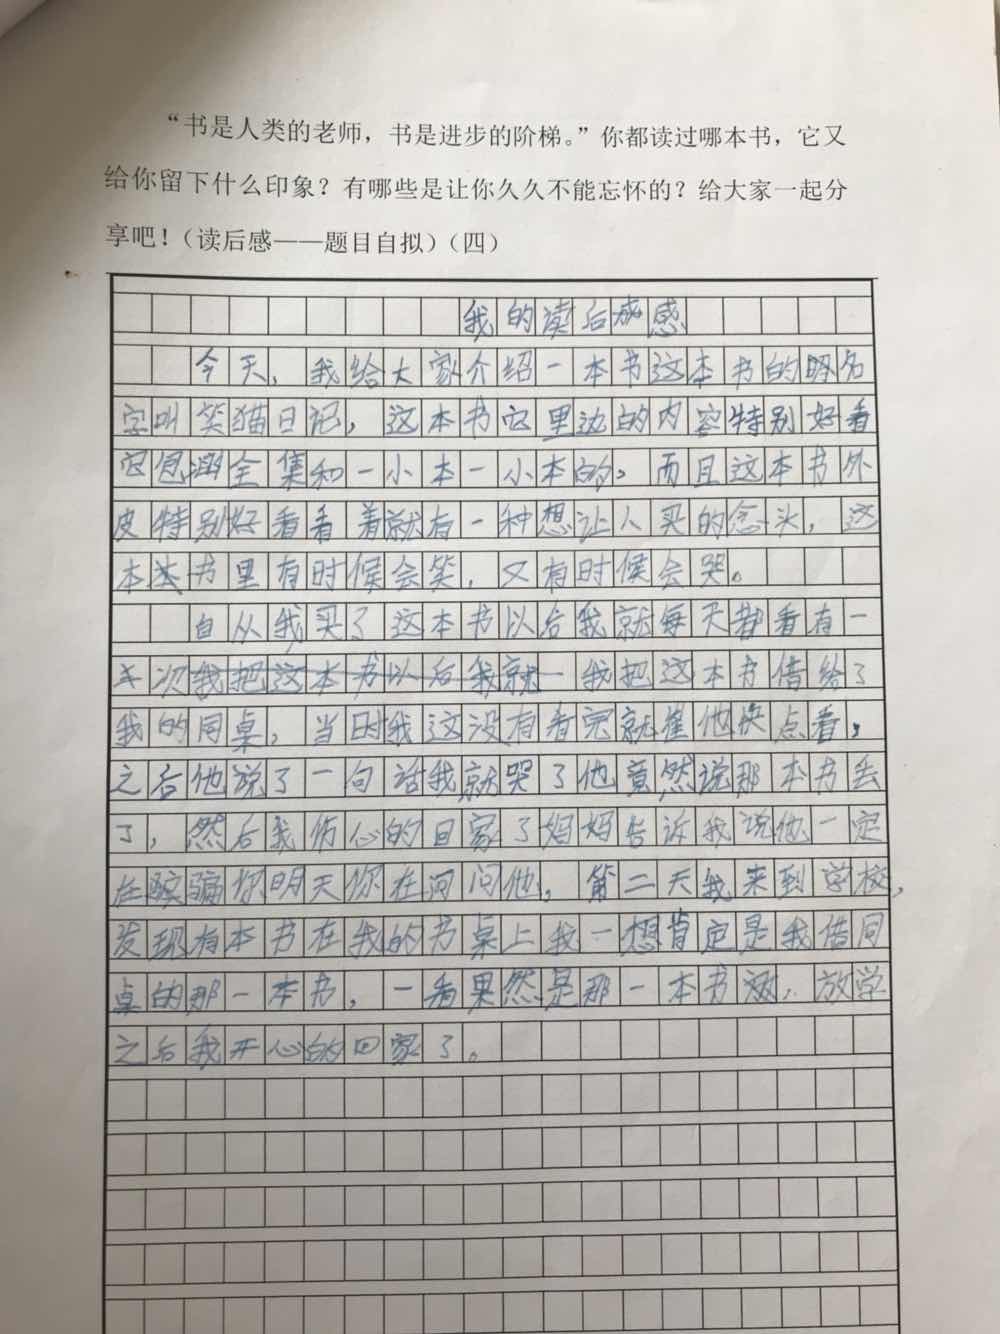 “书是人类的老师，书是进步的阶梯。”你都读过哪本书，它又
给你留下什么印象？有哪些是让你久久不能忘怀的？给大家一起分
享吧！（读后感——题目自拟）（四）
我的读后感
今天，我给大家介绍一本书这本书的名
字叫笑猫日记，这本书它里边的内容特别好看
它包涵全集和一小本一小本的，而且这本书外
皮特别好看看着就有一种想让人买的念头，这
本书里有时候会笑，又有时候会哭。
自从我买了这本书以后我就每天都看有一
次我把这本书以后我就一我把这本书借给了
我的同桌，当时我这没有看完就崔他快点看，
之后他说了一句话我就哭了他竟然说那本书丢
了，然后我伤心的回家了妈妈告诉我说他一定
在骗你明天你在问问他，第二天我来到学校，
发现有本书在我的书桌上我一想肯定是我借同
桌的那一本书，一看果然是那一本书，放学
之后我开心的回家了。